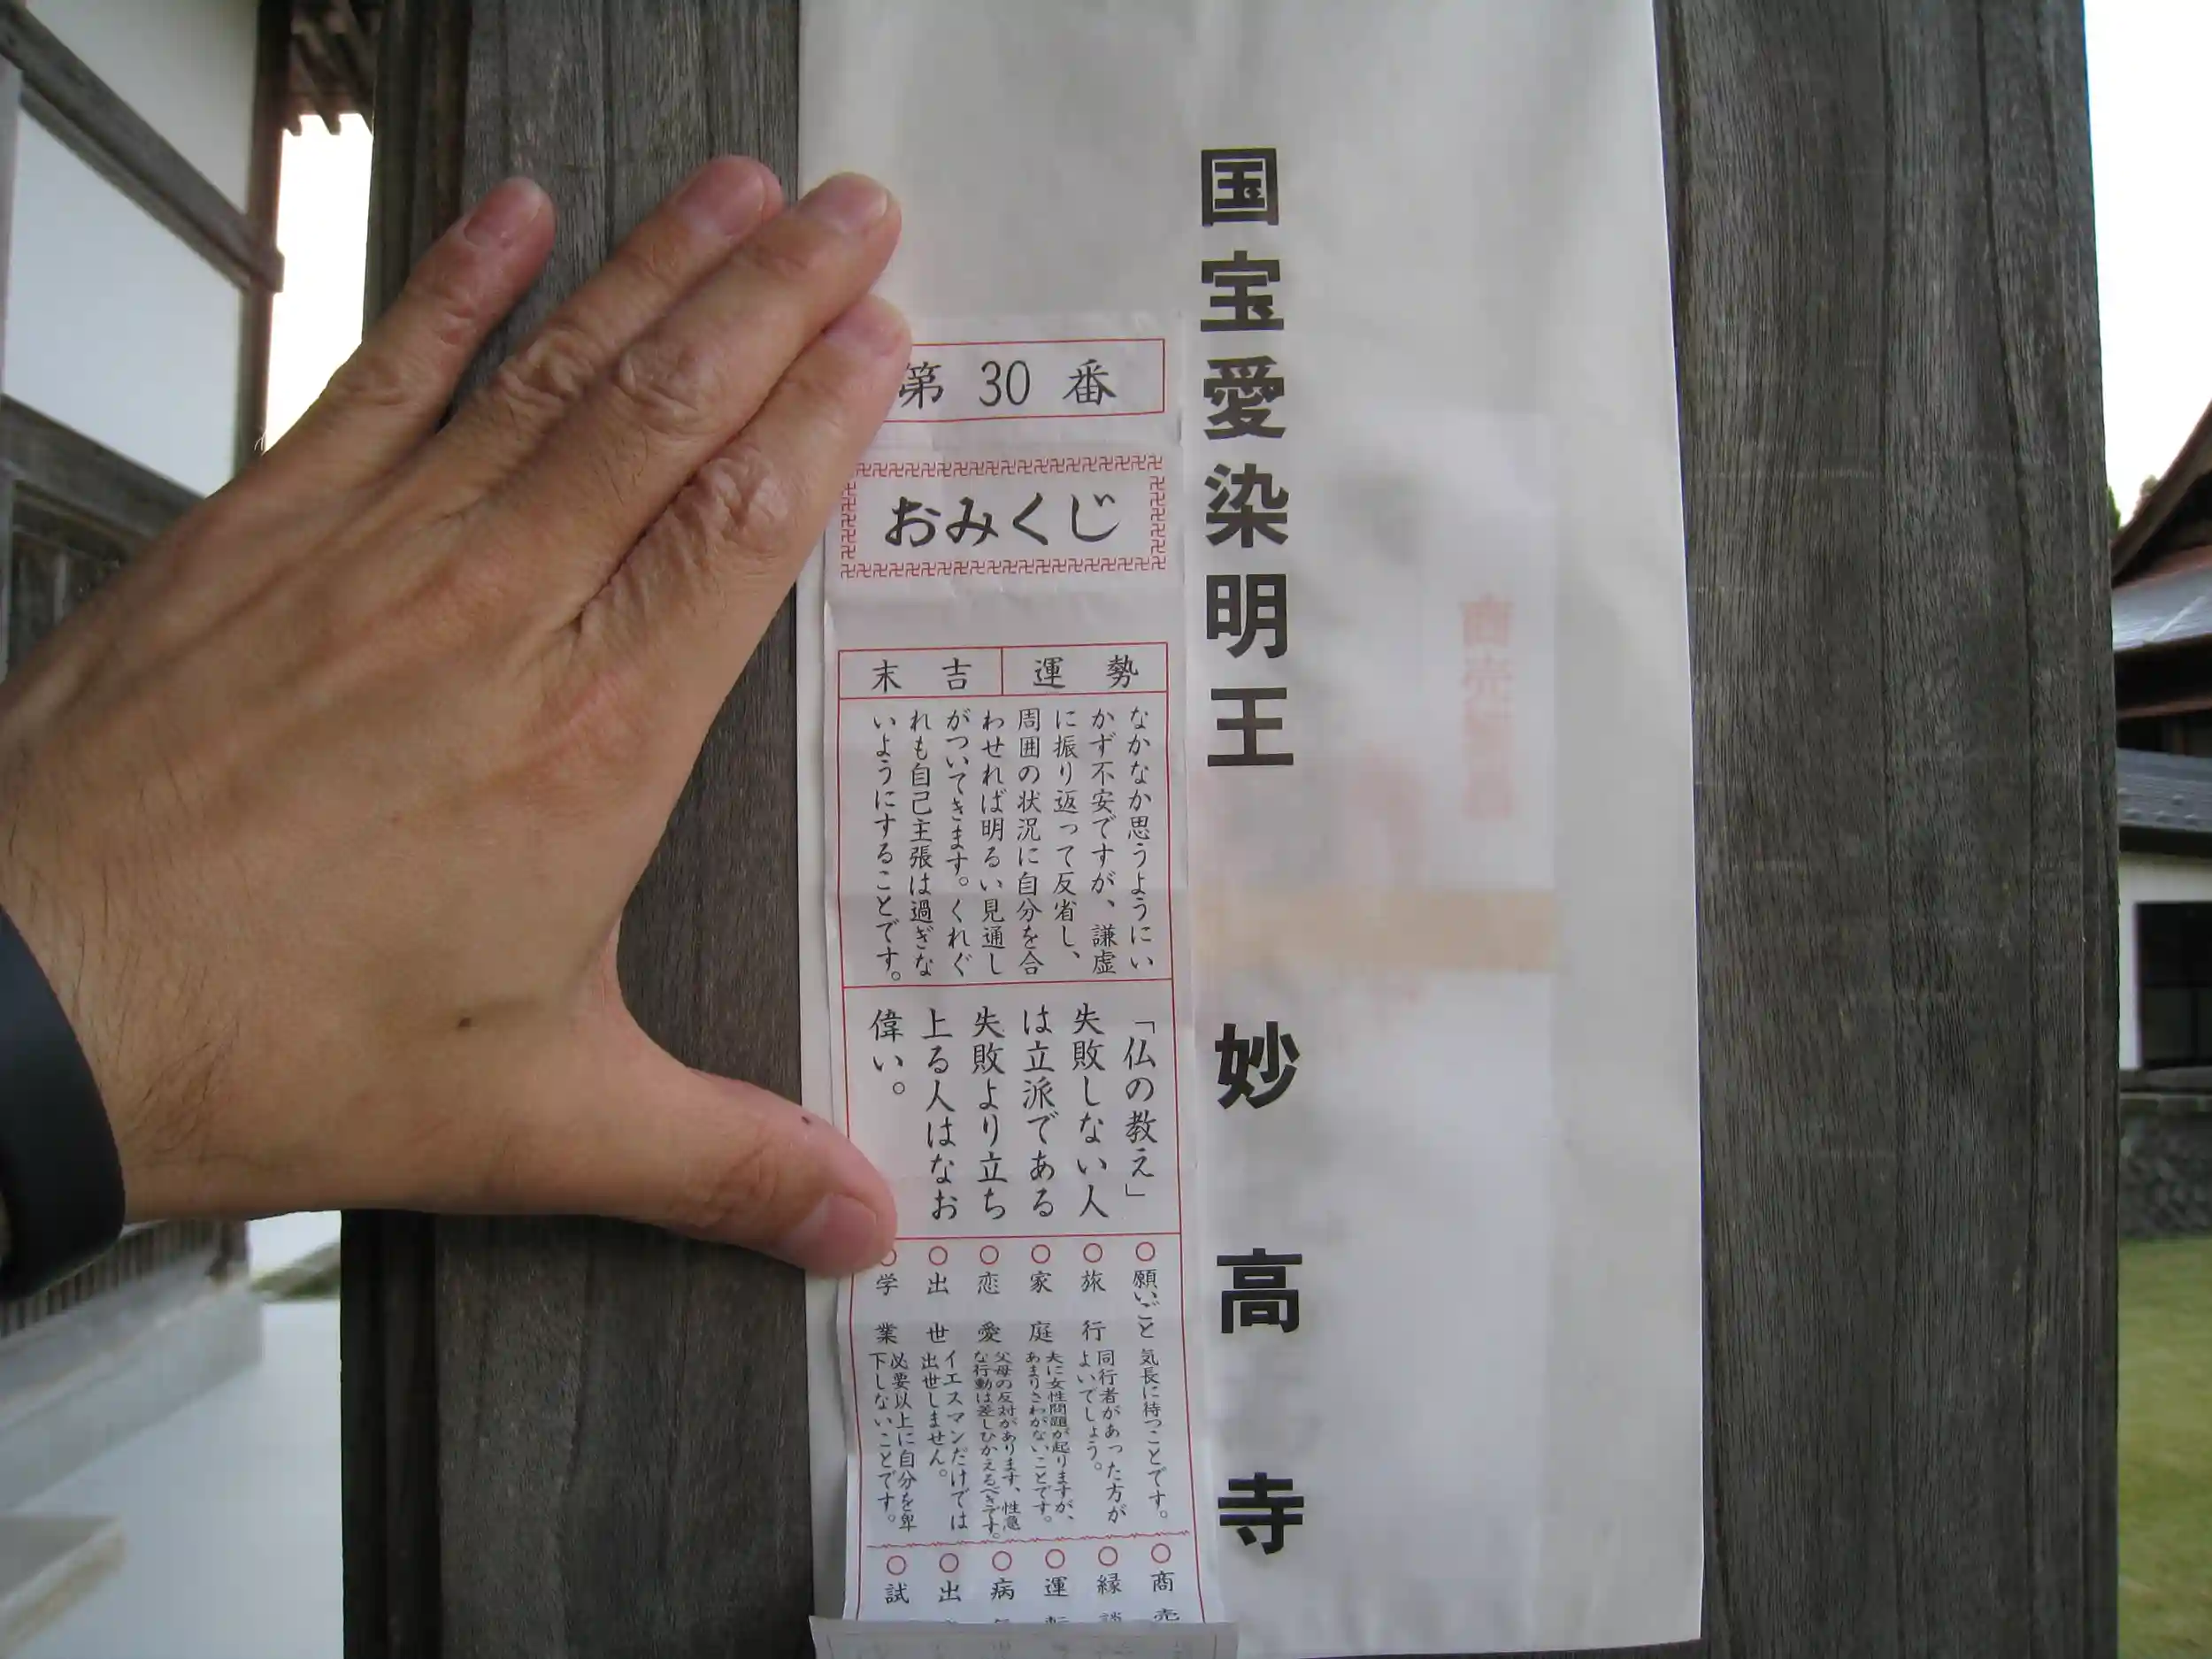 国宝愛染明王 妙高寺
第 30 番
おみくじ
運勢
末吉
なかなか思うようにい
かず不安ですが、謙虚
に振り返って反省し、
周囲の状況に自分を合
わせれば明るい見通し
がついてきます。くれぐ
れも自己主張は過ぎな
いようにすることです。
「仏の教え」
失敗しない人
は立派である
失敗より立ち
上る人はなお
偉い。
○願いごと
気長に待つことです。
○旅行
同行者があった方が
よいでしょう。
○家庭
夫に女性問題が起りますが、
あまりさわがないことです。
○恋愛
父母の反対があります、性急
な行動は差しひかえるべきです。
○出世
イエスマンだけでは
出世しません。
○学業
必要以上に自分を卑
下しないことです。
○商売
○縁談
○運転
○病
○出
○試